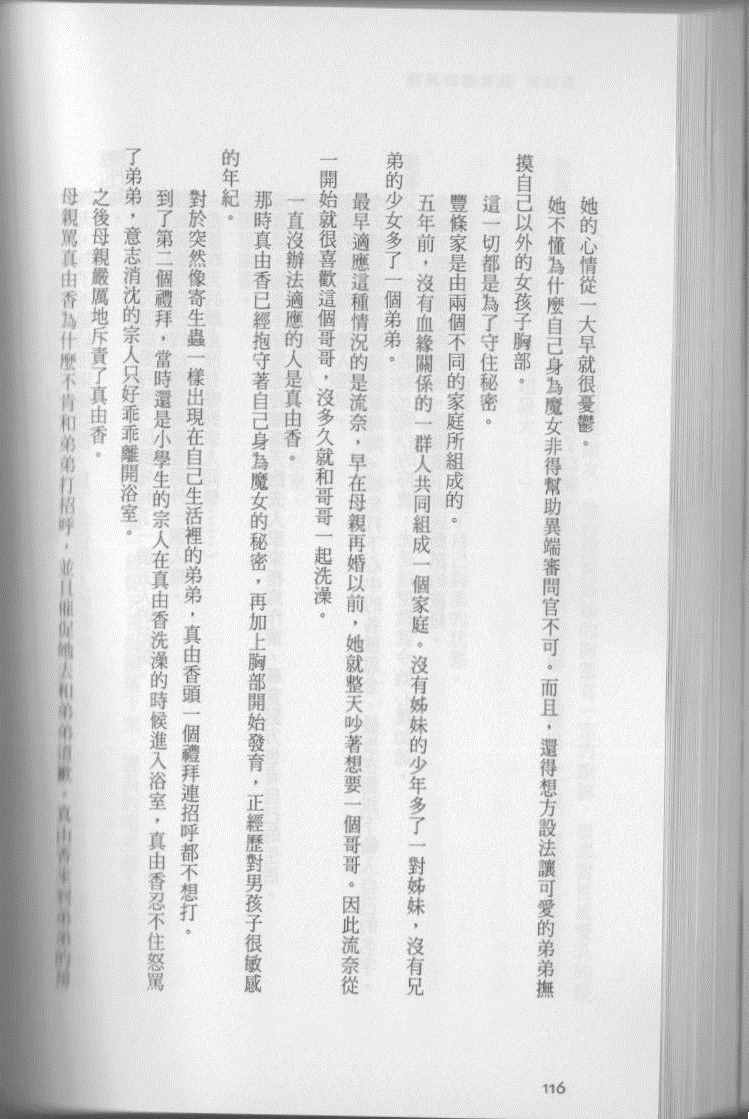 她的心情從一大早就很憂鬱。
她不懂為什麼自己身為魔女非得幫助異端審問官不可。而且，還得想方設法讓可愛的弟弟撫
摸自己以外的女孩子胸部。
這一切都是為了守住秘密。
豐條家是由兩個不同的家庭所組成的。
五年前，沒有血緣關係的一群人共同組成一個家庭。沒有姊妹的少年多了一對姊妹，沒有兄
弟的少女多了一個弟弟。
最早適應這種情況的是流奈，早在母親再婚以前，她就整天吵著想要一個哥哥。因此流奈從
一開始就很喜歡這個哥哥，沒多久就和哥哥一起洗澡。
一直沒辦法適應的人是真由香。
那時真由香已經抱守著自己身為魔女的秘密，再加上胸部開始發育，正經歷對男孩子很敏感
的年紀。
對於突然像寄生蟲一樣出現在自己生活裡的弟弟，真由香頭一個禮拜連招呼都不想打。
到了第二個禮拜，當時還是小學生的宗人在真由香洗澡的時候進入浴室，真由香忍不住怒罵
了弟弟，意志消沈的宗人只好乖乖離開浴室。
之後母親嚴厲地斥責了真由香。
母親罵真由香為什麼不肯和弟弟打招呼，並且催促她去和弟弟道歉。真由香來到弟弟的房
116